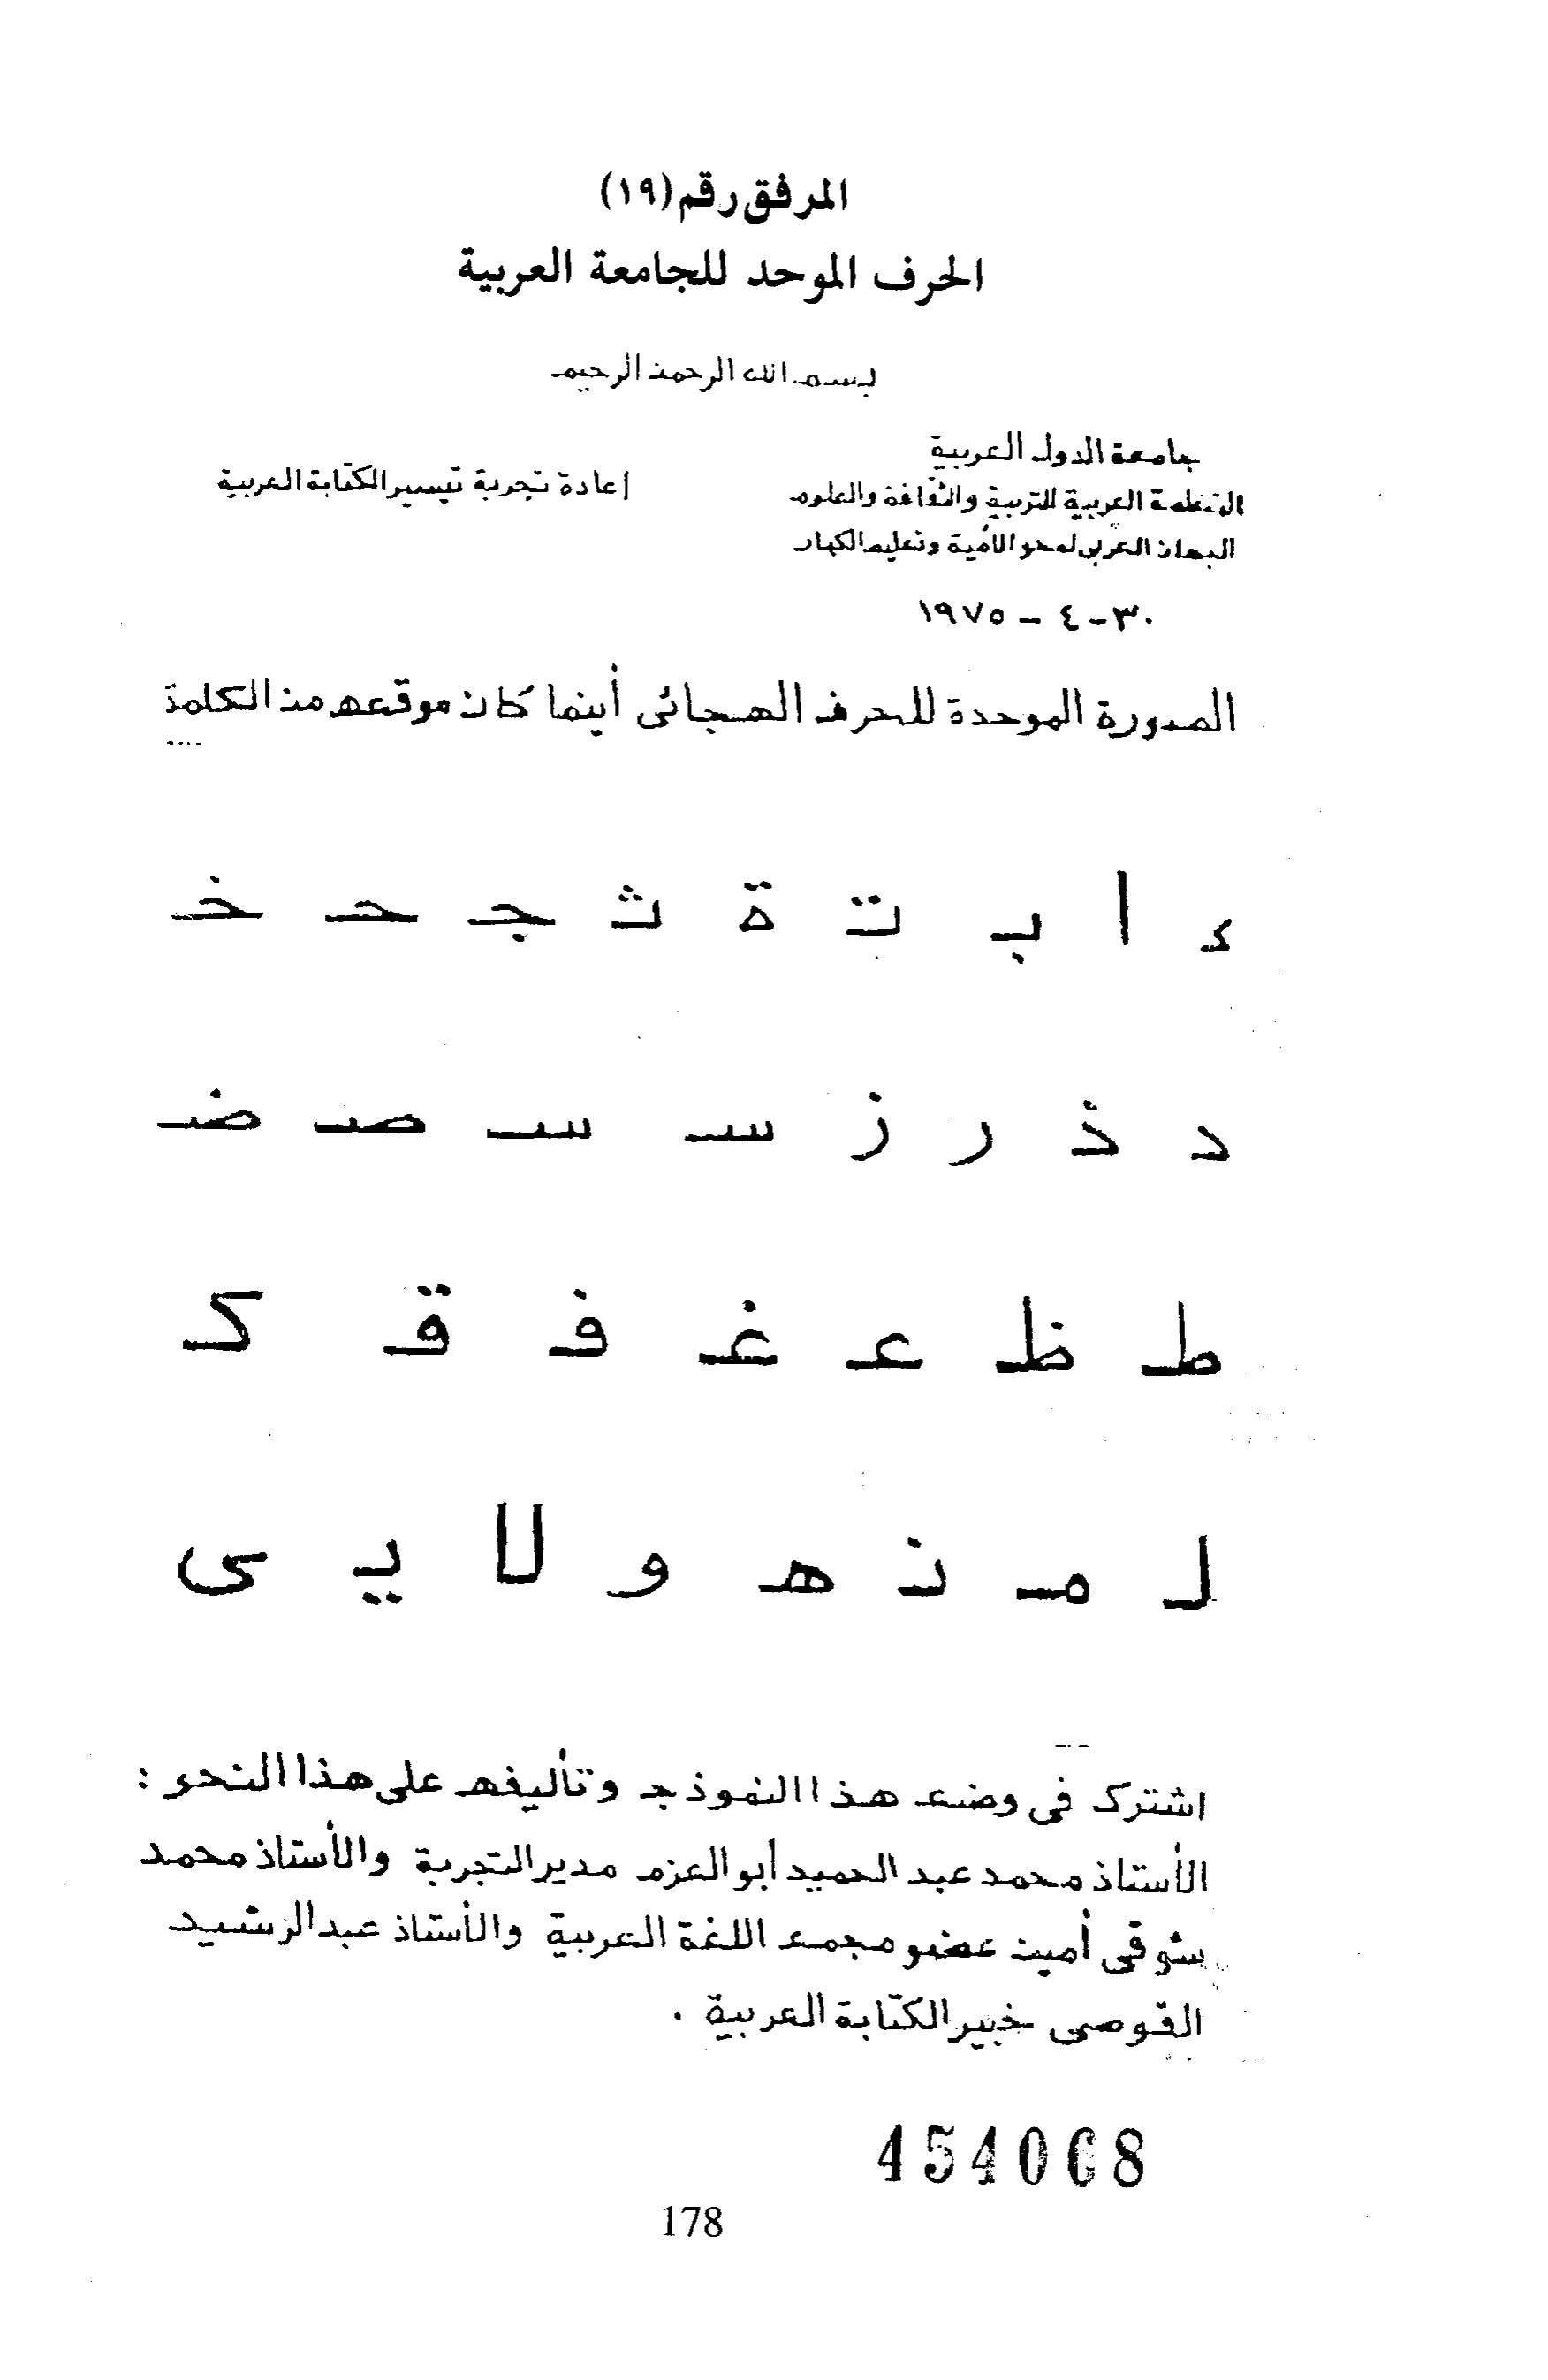 المرفق رقم (١٩)
الحرف الموحد للجامعة العربية
بسم الله الرحمن الرحيم
جامعة الدول العربية
المنظمة العربية للتربية والثقافة والعلوم
الجهاز العربى لمحو الأمية وتعليم الكبار
إعادة تجربة تيسير الكتابة العربية
٣٠ - ٤ - ١٩٧٥
الصورة الموحدة للحرف الهجائى أينما كان موقعه من الكلمة
ء ا بـ تـ ة ثـ جـ حـ خـ
د ذ ر ز سـ سـ صـ ضـ
طـ ظـ عـ غـ فـ قـ كـ
لـ مـ نـ هـ و لا يـ ى
اشترك فى وضع هذا النموذج وتأليفه على هذا النحو :
الأستاذ محمد عبد الحميد أبو العزم مدير التجربة والأستاذ محمد
شوقى أمين عضو مجمع اللغة العربية والأستاذ عبد الرشيد
القوصى خبير الكتابة العربية .
454068
178